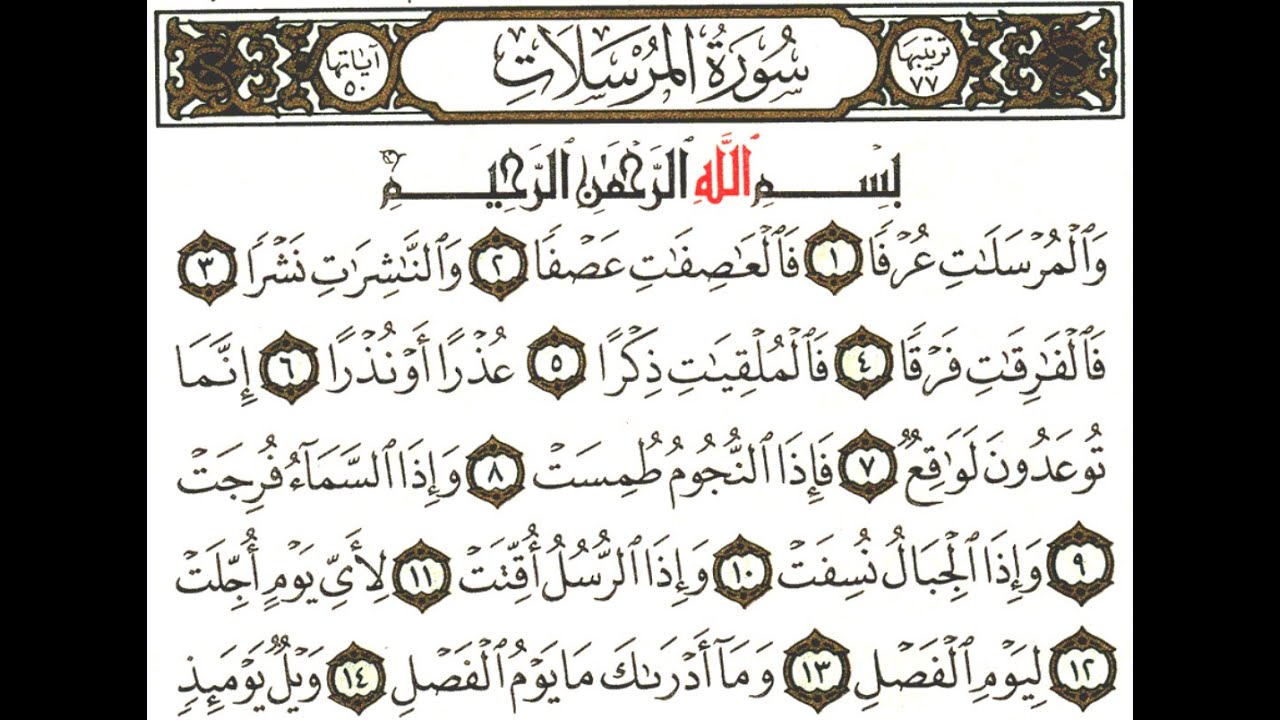 ترتيبها ٧٧ سُورَةُ المُرْسَلَاتِ آياتها ٥٠
بِسْمِ ٱللَّهِ ٱلرَّحْمَٰنِ ٱلرَّحِيمِ
وَٱلْمُرْسَلَٰتِ عُرْفًا ١ فَٱلْعَٰصِفَٰتِ عَصْفًا ٢ وَٱلنَّٰشِرَٰتِ نَشْرًا ٣
فَٱلْفَٰرِقَٰتِ فَرْقًا ٤ فَٱلْمُلْقِيَٰتِ ذِكْرًا ٥ عُذْرًا أَوْ نُذْرًا ٦ إِنَّمَا
تُوعَدُونَ لَوَٰقِعٌ ٧ فَإِذَا ٱلنُّجُومُ طُمِسَتْ ٨ وَإِذَا ٱلسَّمَآءُ فُرِجَتْ
٩ وَإِذَا ٱلْجِبَالُ نُسِفَتْ ١٠ وَإِذَا ٱلرُّسُلُ أُقِّتَتْ ١١ لِأَيِّ يَوْمٍ أُجِّلَتْ
١٢ لِيَوْمِ ٱلْفَصْلِ ١٣ وَمَآ أَدْرَىٰكَ مَا يَوْمُ ٱلْفَصْلِ ١٤ وَيْلٌ يَوْمَئِذٍ